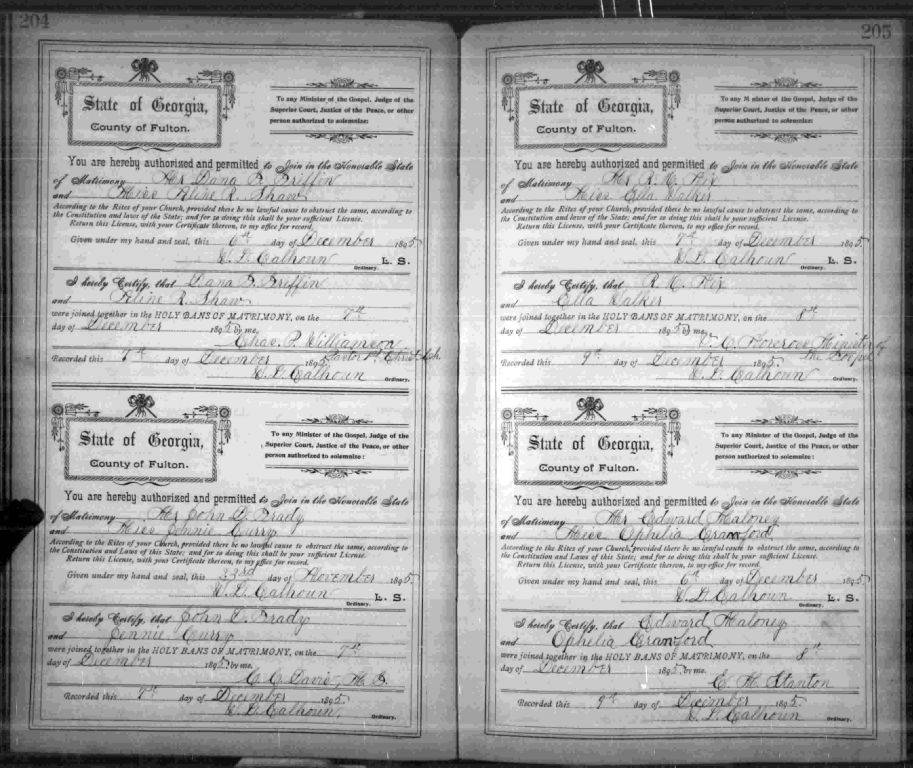 204
State of Georgia,
County of Fulton.
To any Minister of the Gospel, Judge of the
Superior Court, Justice of the Peace, or other
person authorized to solemnize:
You are hereby authorized and permitted to Join in the Honorable State
of Matrimony Mr Dana Griffin
and Miss R. Shaw
According to the Rites of your Church, provided there be no lawful cause to obstruct the same, according to
the Constitution and laws of the State; and for so doing this shall be your sufficient License.
Return this License, with your Certificate thereon, to my office for record.
Given under my hand and seal, this 6th day of December 1895
Calhoun L. S.
Ordinary.
I hereby Certify, that Dana Griffin
and R. Shaw
were joined together in the HOLY BANS OF MATRIMONY, on the 7th
day of December 1895 by me,
Chas. P. Williamson
Pastor 1st Christ Ch
Recorded this 7th day of December 1895
Calhoun Ordinary.
State of Georgia,
County of Fulton.
To any Minister of the Gospel, Judge of the
Superior Court, Justice of the Peace, or other
person authorized to solemnize:
You are hereby authorized and permitted to Join in the Honorable State
of Matrimony Mr John Brady
and Miss Jennie Curry
According to the Rites of your Church, provided there be no lawful cause to obstruct the same, according to
the Constitution and Laws of this State; and for so doing this shall be your sufficient License.
Return this License, with your Certificate thereon, to my office for record.
Given under my hand and seal, this day of November 1895
Calhoun L. S.
Ordinary.
I hereby Certify, that John Brady
and Jennie Curry
were joined together in the HOLY BANS OF MATRIMONY, on the 7th
day of December 1895 by me.
C. C. Davis, M. G.
Recorded this 7th day of December 1895
Calhoun Ordinary.
205
State of Georgia,
County of Fulton.
To any Minister of the Gospel, Judge of the
Superior Court, Justice of the Peace, or other
person authorized to solemnize:
You are hereby authorized and permitted to Join in the Honorable State
of Matrimony Mr R. Hix
and Miss Ella Walker
According to the Rites of your Church, provided there be no lawful cause to obstruct the same, according to
the Constitution and laws of the State; and for so doing this shall be your sufficient License.
Return this License, with your Certificate thereon, to my office for record.
Given under my hand and seal, this 7th day of December 1895
Calhoun L. S.
Ordinary.
I hereby Certify, that R. Hix
and Ella Walker
were joined together in the HOLY BANS OF MATRIMONY, on the 8th
day of December 1895 by me,
C. Norcross Minister of
the Gospel
Recorded this 9th day of December 1895
Calhoun Ordinary.
State of Georgia,
County of Fulton.
To any Minister of the Gospel, Judge of the
Superior Court, Justice of the Peace, or other
person authorized to solemnize:
You are hereby authorized and permitted to Join in the Honorable State
of Matrimony Mr Edward Maloney
and Miss Ophelia Crawford
According to the Rites of your Church, provided there be no lawful cause to obstruct the same, according to
the Constitution and laws of this State; and for so doing this shall be your sufficient License.
Return this License, with your Certificate thereon, to my office for record.
Given under my hand and seal, this 6th day of December 1895
Calhoun L. S.
Ordinary.
I hereby Certify, that Edward Maloney
and Ophelia Crawford
were joined together in the HOLY BANS OF MATRIMONY, on the 8th
day of December 1895 by me.
C. M. Stanton
Recorded this 9th day of December 1895
Calhoun Ordinary.